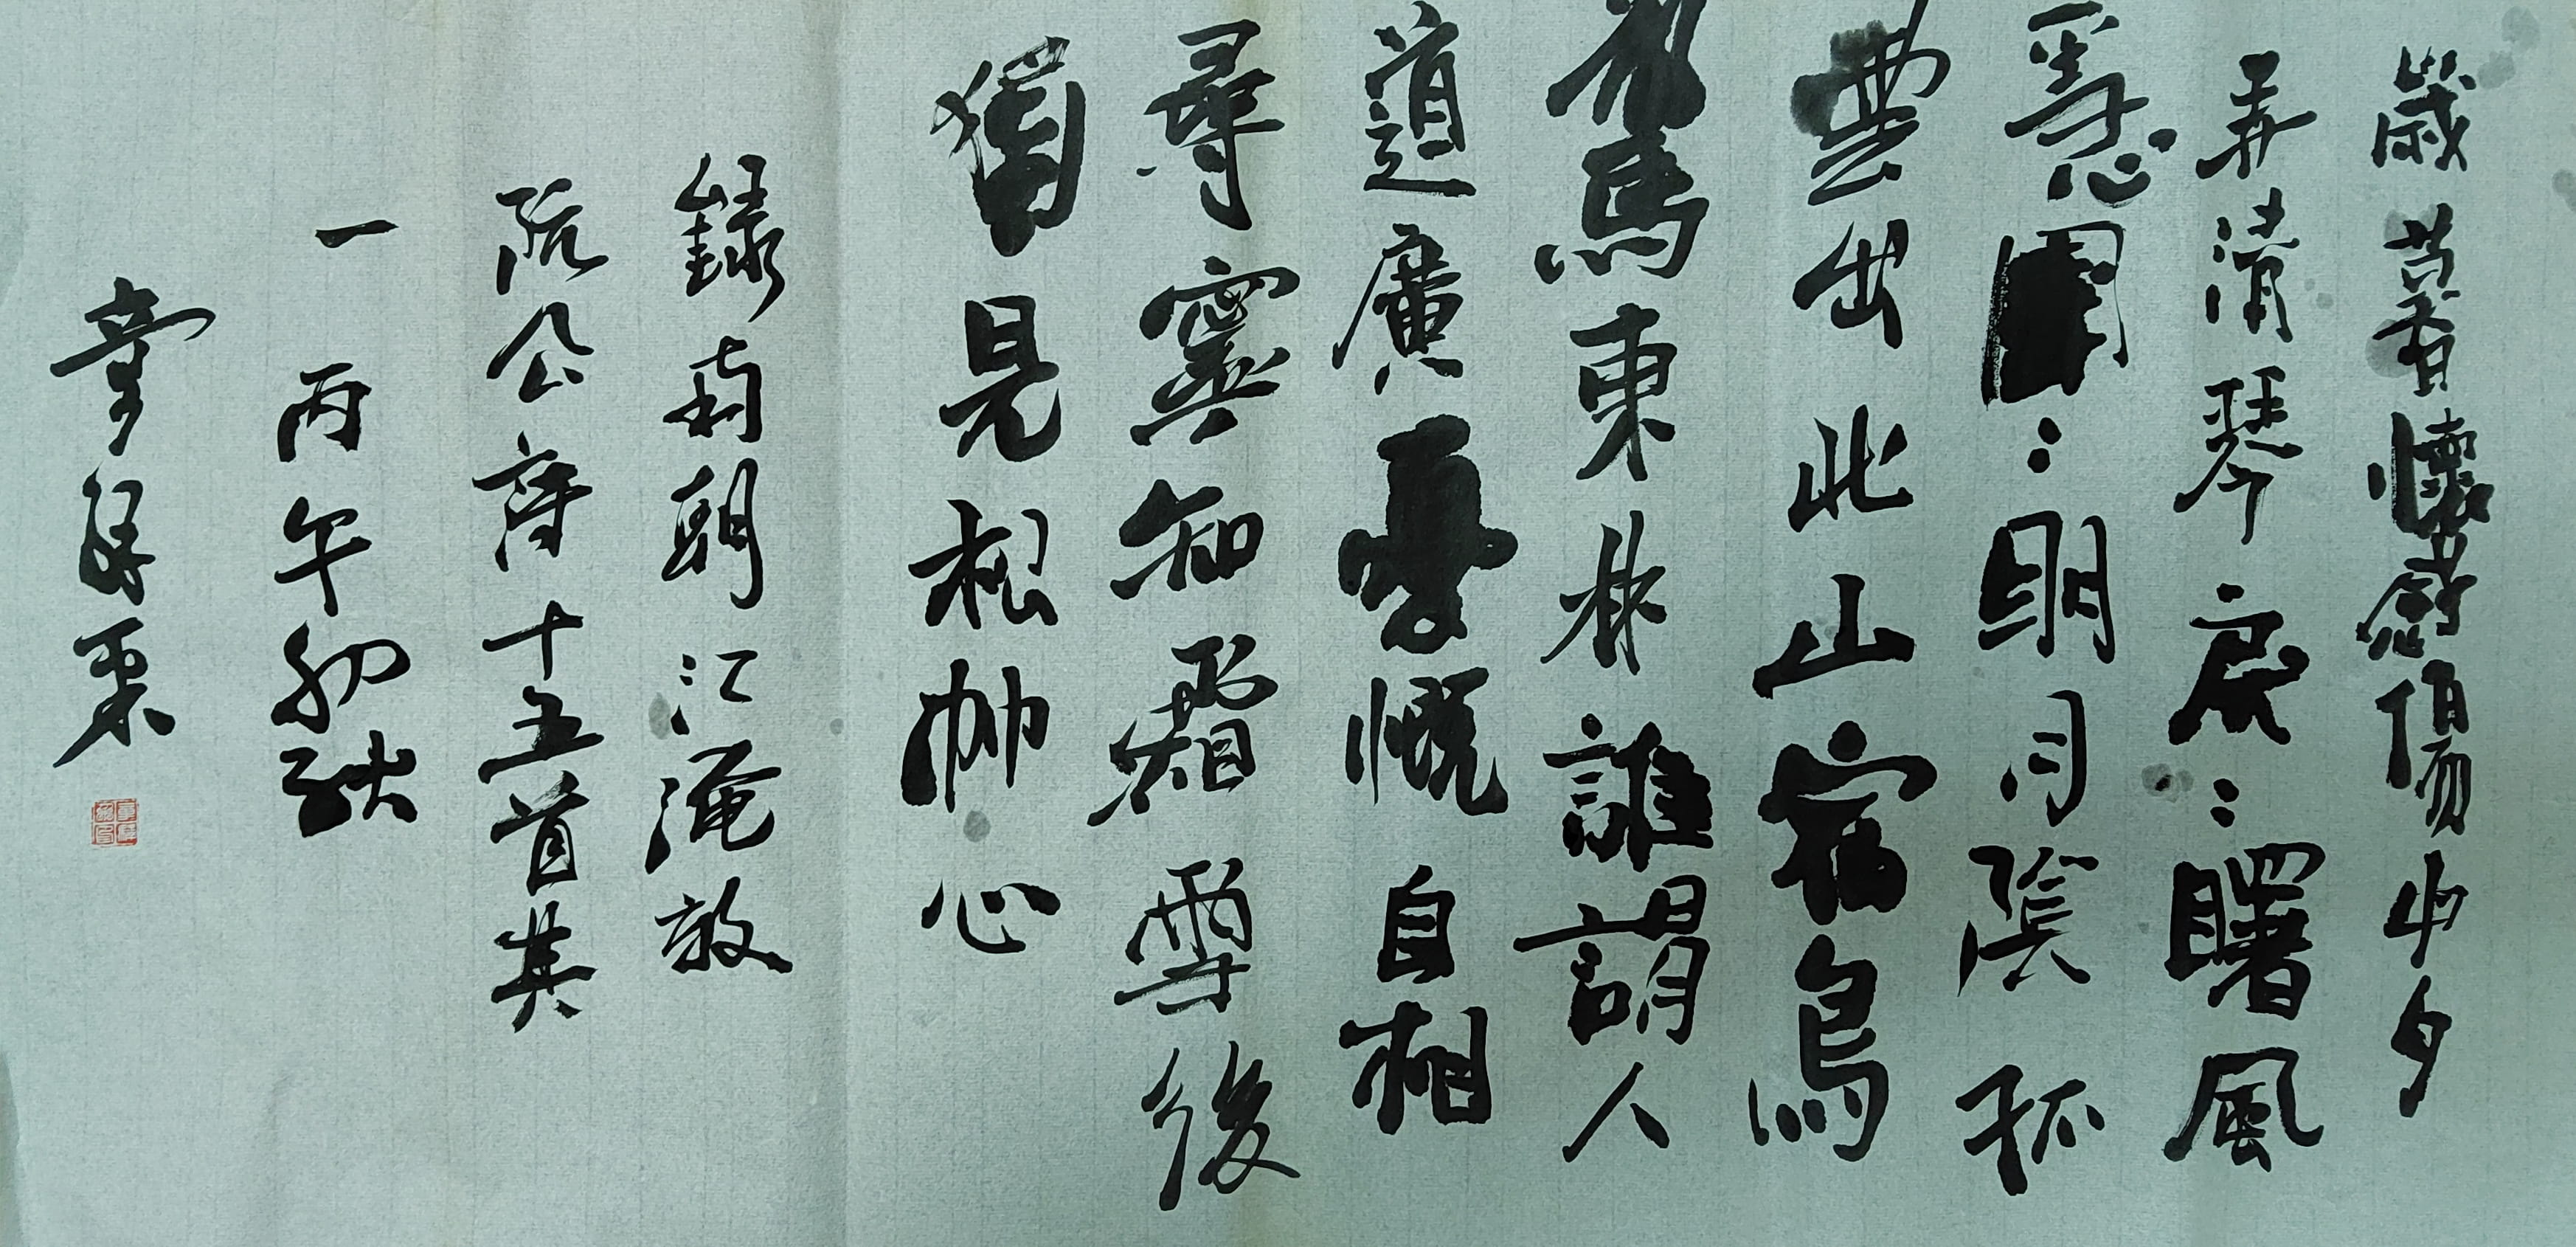 歲暮懷感傷中夕
弄清琴戾々曙風
急團々明月陰孤
雲出北山宿鳥
驚東林誰謂人
道廣憂慨自相
尋寧知霜雪後
獨見松竹心
錄南朝江淹效
阮公詩十五首其
一 丙午初秋